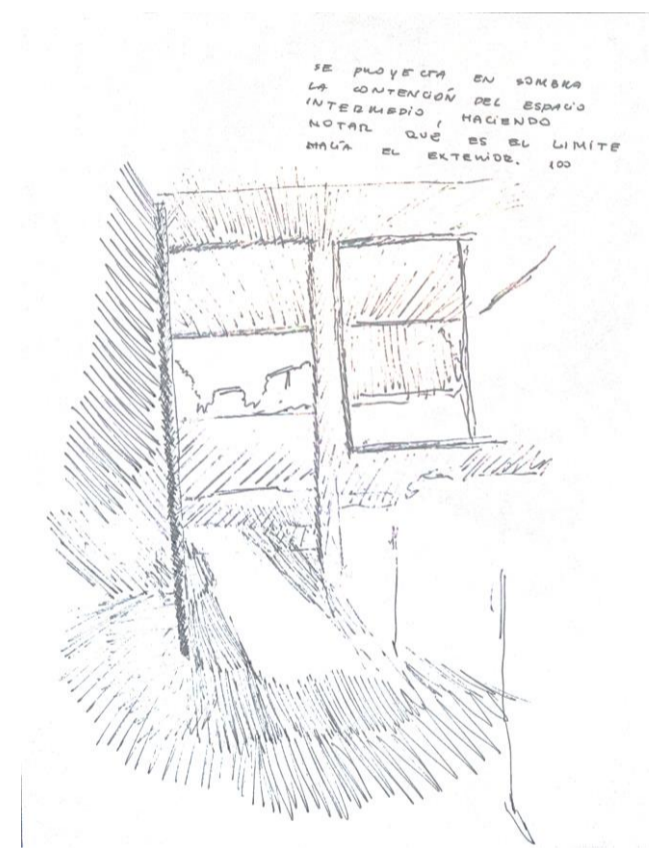 SE PROYECTA EN SOMBRA
LA CONTENCIÓN DEL ESPACIO
INTERMEDIO, HACIENDO
NOTAR QUE ES EL LIMITE
HACIA EL EXTERIOR. 100